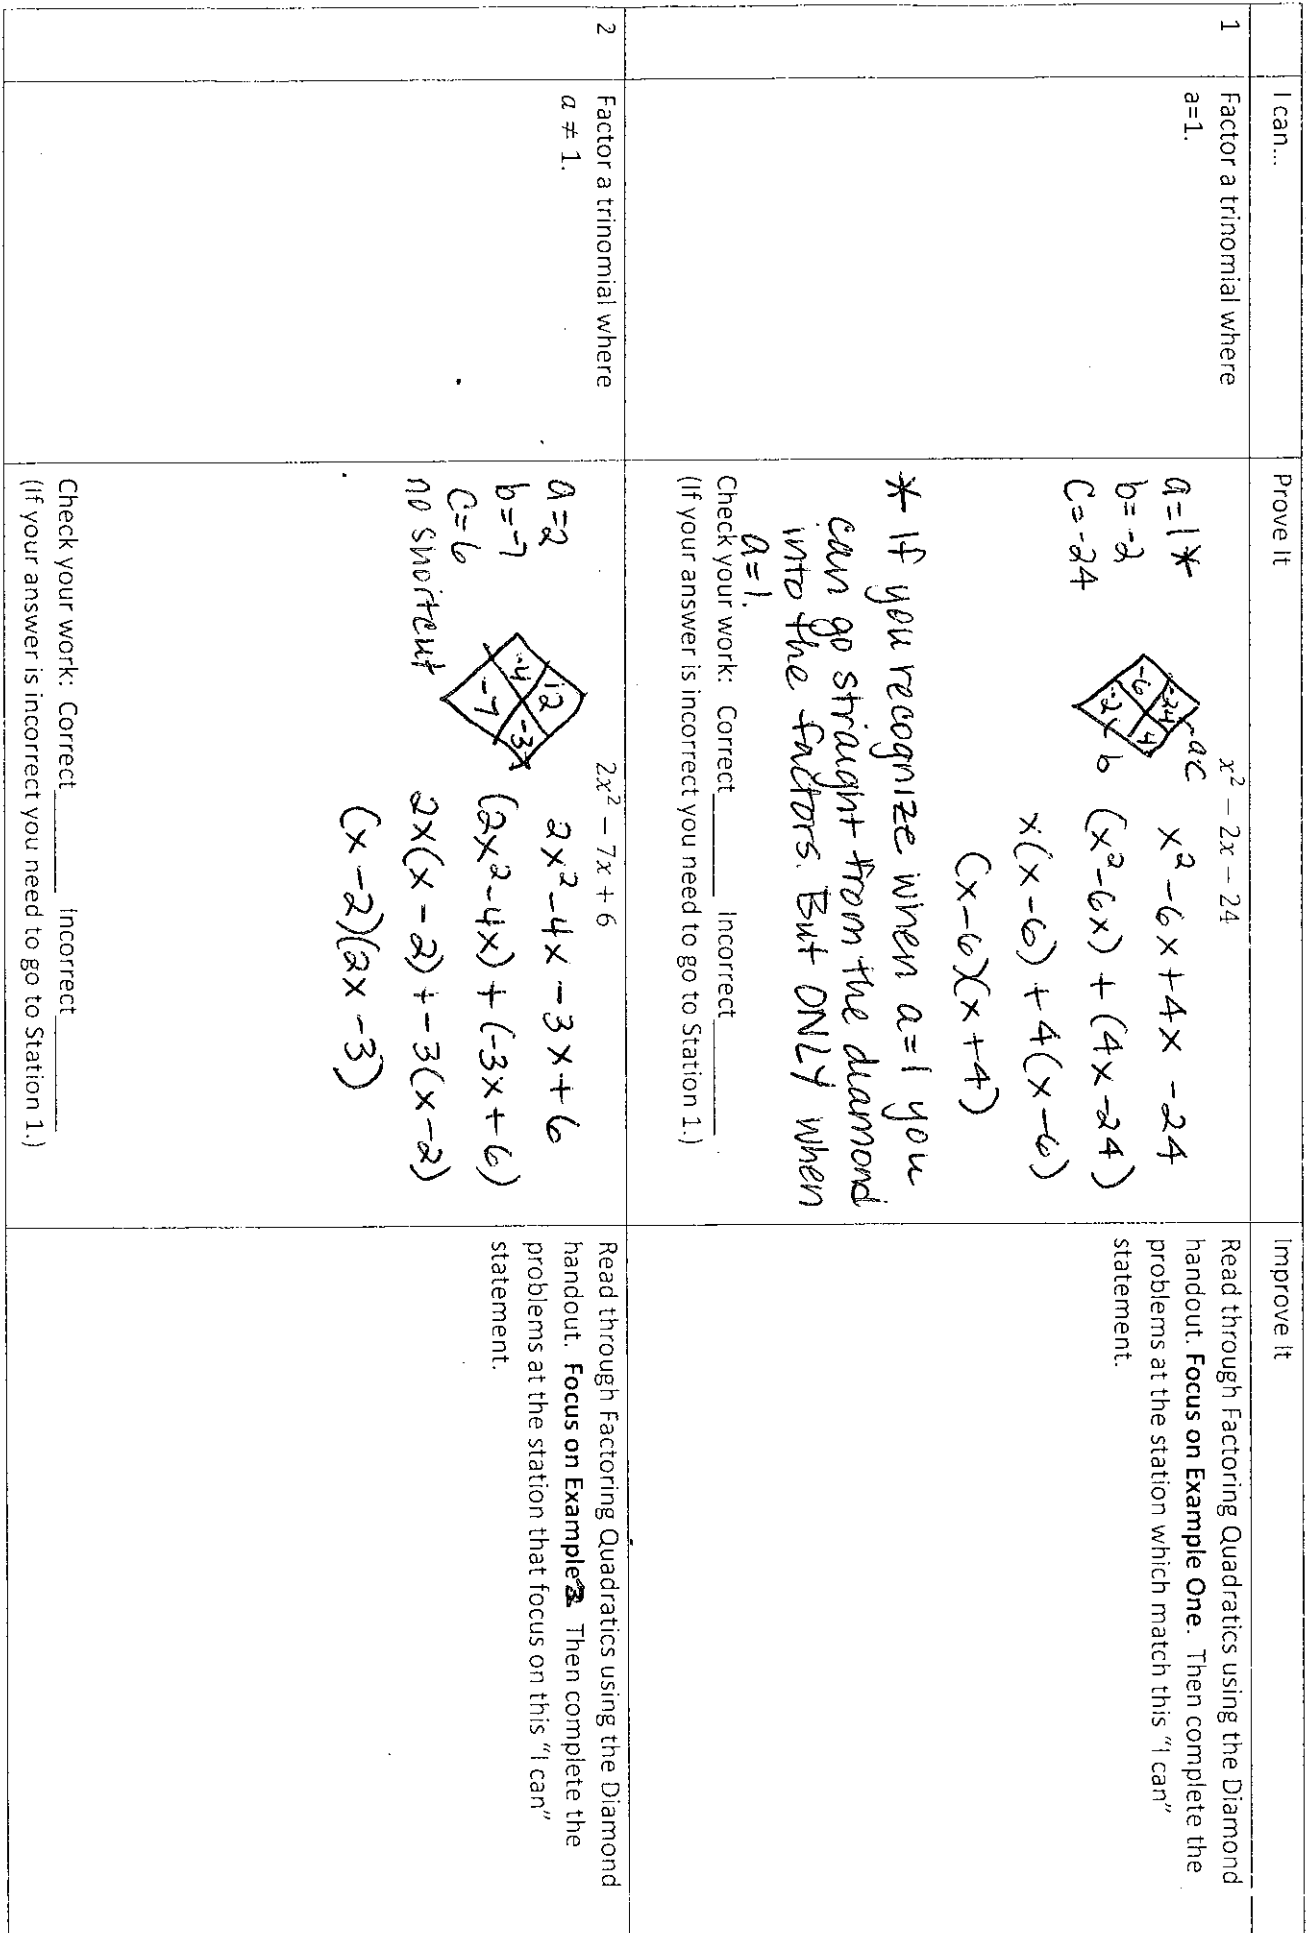 I can...
Prove It
Improve It
1
Factor a trinomial where
a=1.
x² − 2x − 24
a=1 *
b=-2
c=-24
ac
-24
-6
4
-2
b
x²-6x+4x -24
(x²-6x)+(4x-24)
x(x-6)+4(x-6)
(x-6)(x+4)
* If you recognize when a=1 you
can go straight from the diamond
into the factors. But ONLY when
a=1.
Check your work: Correct________ Incorrect_________
(If your answer is incorrect you need to go to Station 1.)
Read through Factoring Quadratics using the Diamond
handout. Focus on Example One. Then complete the
problems at the station which match this "I can"
statement.
2
Factor a trinomial where
a ≠ 1.
2x² − 7x + 6
a=2
b=-7
c=6
no shortcut
12
-4
-3
-7
2x²-4x-3x+6
(2x²-4x)+(-3x+6)
2x(x-2)+-3(x-2)
(x-2)(2x-3)
Check your work: Correct________ Incorrect_________
(If your answer is incorrect you need to go to Station 1.)
Read through Factoring Quadratics using the Diamond
handout. Focus on Example Then complete the
problems at the station that focus on this "I can"
statement.